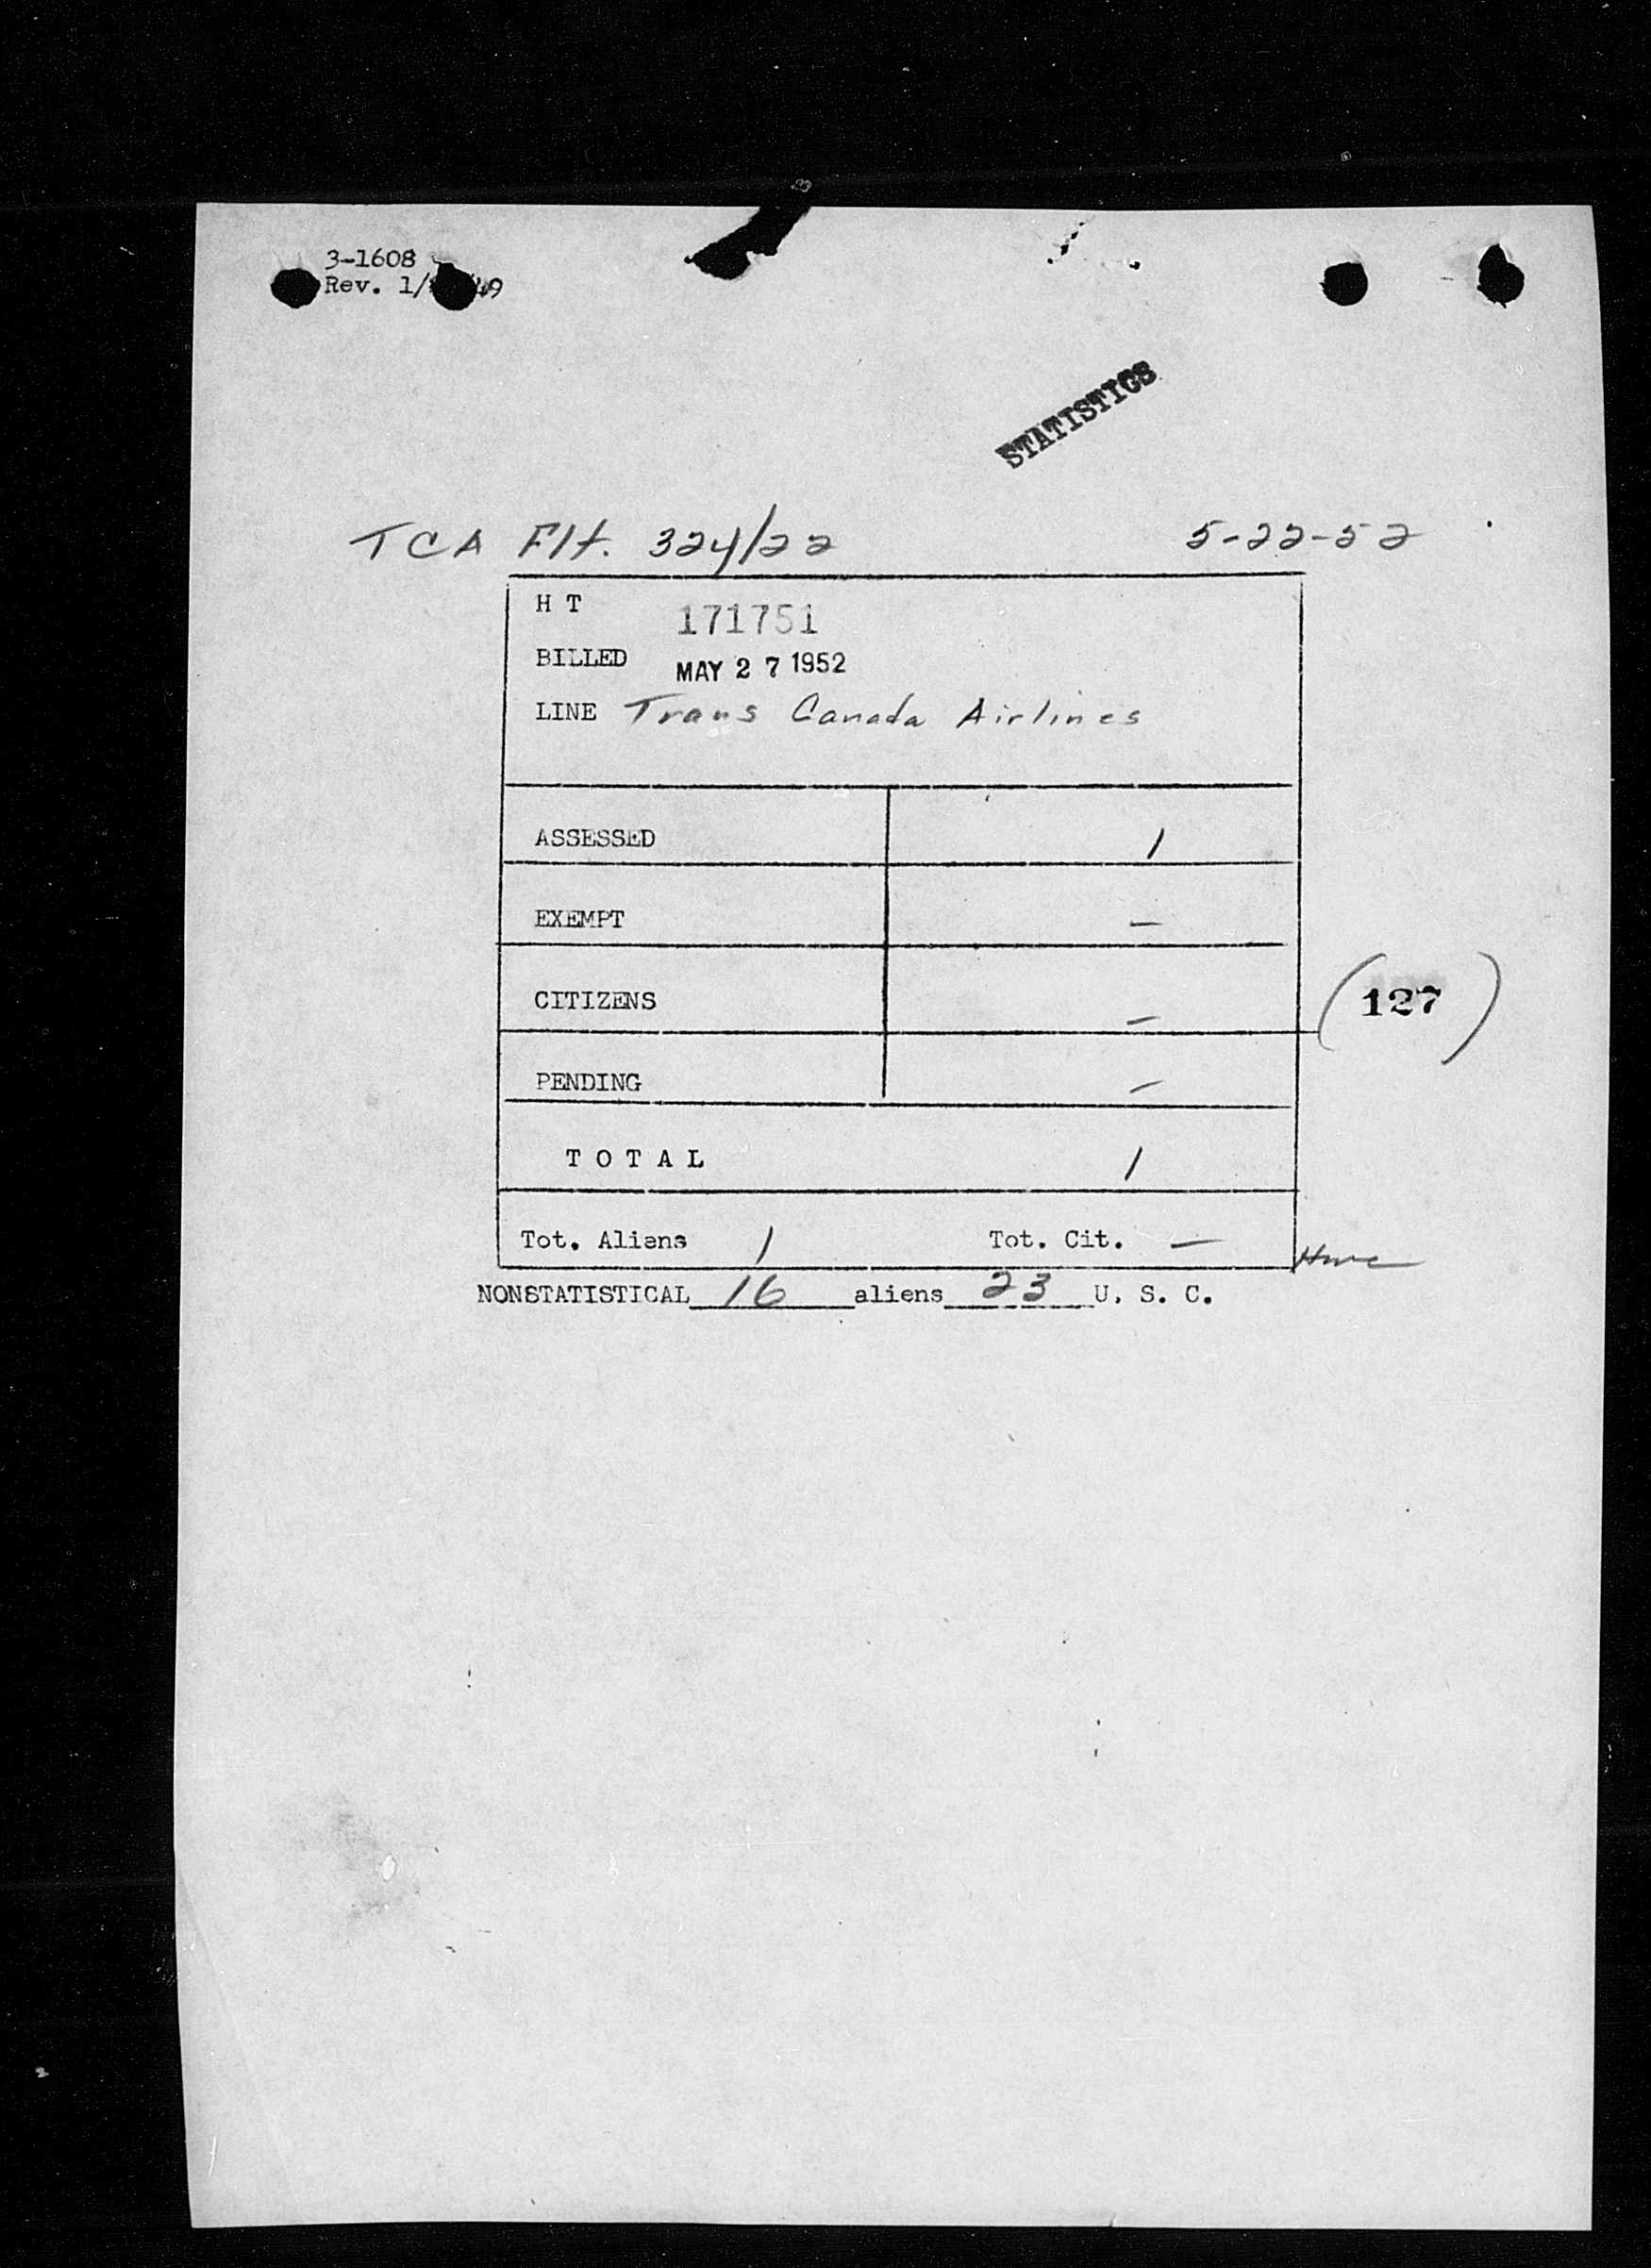 3-1608
Rev. 1/ 49
STATISTICS
TCA Flt. 324/22 5-22-52
H T 171751
BILLED MAY 27 1952
LINE Trans Canada Airlines
ASSESSED 1
EXEMPT —
CITIZENS — (127)
PENDING —
T O T A L 1
Tot. Aliens 1 Tot. Cit. —
NONSTATISTICAL 16 aliens 23 U. S. C.